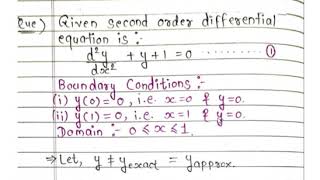 Que) Given second order differential
equation is :-
d²y/dx² + y + 1 = 0 ......... ①
Boundary Conditions :-
(i) y(0) = 0, i.e. x=0 & y=0.
(ii) y(1) = 0, i.e. x=1 & y=0.
Domain :- 0 ≤ x ≤ 1.
⇒ Let, y ≠ y exact = y approx.